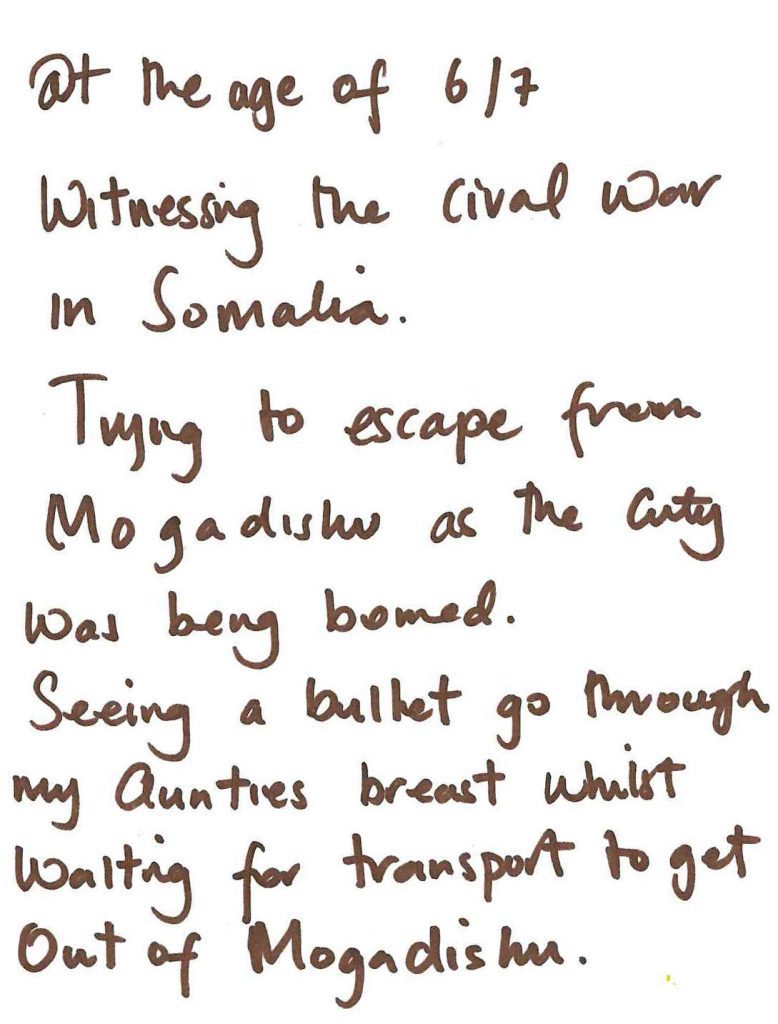 At the age of 6/7
Witnessing the cival war
in Somalia.
Trying to escape from
Mogadishu as the city
was being bomed.
Seeing a bullet go through
my Aunties breast whilst
Waiting for transport to get
Out of Mogadishu.